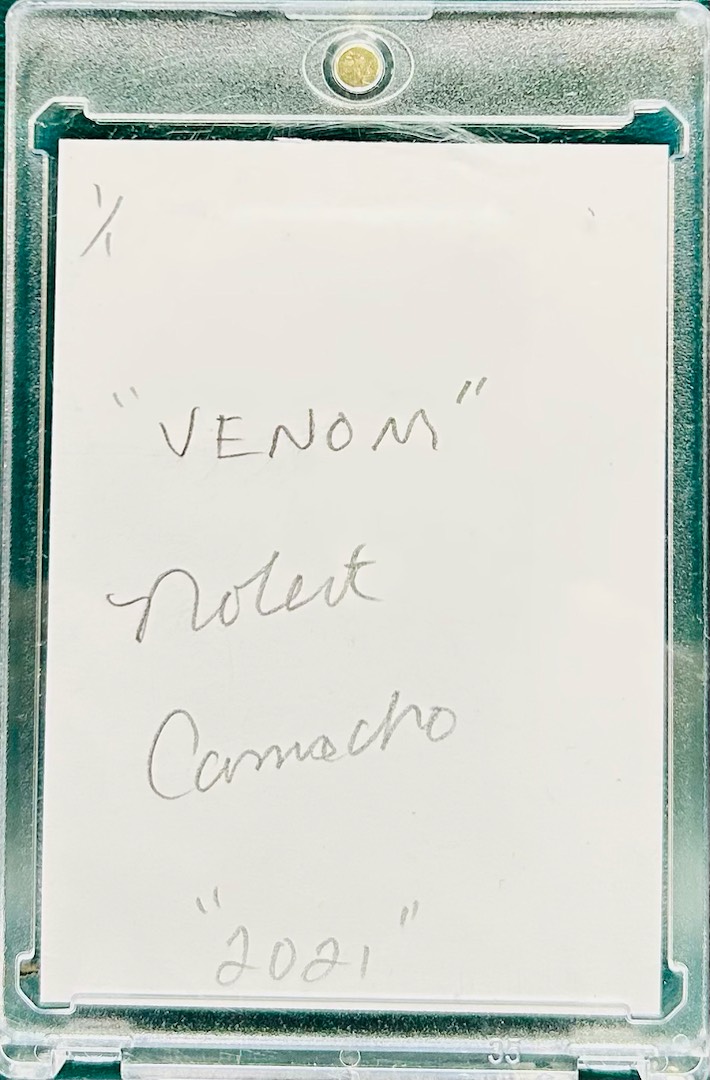 1/1
"VENOM"
Nolert
Camacho
"2021"
35